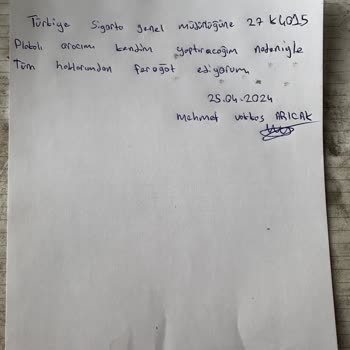 Türkiye Sigorta genel müdürlüğüne 27 K 4015
Plakalı aracımı kendim yaptıracağım nedeniyle
Tüm haklarımdan feragat ediyorum
25.04.2024
Mehmet vakkas ARICAK